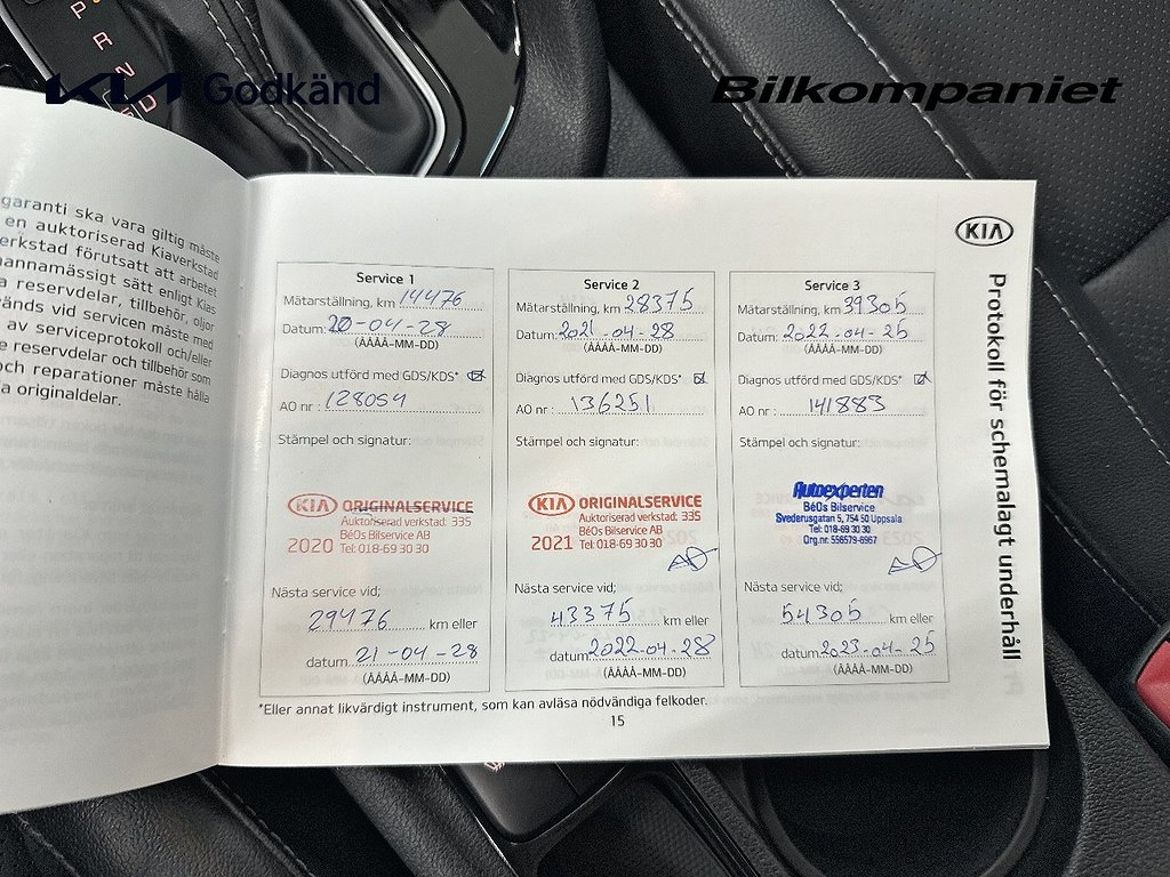 P
R
N
D
KIA Godkänd
Bilkompaniet
garanti ska vara giltig måste
en auktoriserad Kiaverkstad
erkstad förutsatt att arbetet
nannamässigt sätt enligt Kias
a reservdelar, tillbehör, oljor
vänds vid servicen måste med
av serviceprotokoll och/eller
e reservdelar och tillbehör som
och reparationer måste hålla
a originaldelar.
KIA
Protokoll för schemalagt underhåll
Service 1
Mätarställning, km 14476
Datum: 20-04-28
(ÅÅÅÅ-MM-DD)
Diagnos utförd med GDS/KDS*
AO nr : 128054
Stämpel och signatur:
KIA ORIGINALSERVICE
Auktoriserad verkstad: 335
BéOs Bilservice AB
2020 Tel: 018-69 30 30
Nästa service vid;
29476 km eller
datum 21-04-28
(ÅÅÅÅ-MM-DD)
Service 2
Mätarställning, km 28375
Datum: 2021-04-28
(ÅÅÅÅ-MM-DD)
Diagnos utförd med GDS/KDS*
AO nr : 136251
Stämpel och signatur:
KIA ORIGINALSERVICE
Auktoriserad verkstad: 335
BéOs Bilservice AB
2021 Tel: 018-69 30 30
Nästa service vid;
43375 km eller
datum 2022-04-28
(ÅÅÅÅ-MM-DD)
Service 3
Mätarställning, km 39305
Datum: 2022-04-25
(ÅÅÅÅ-MM-DD)
Diagnos utförd med GDS/KDS*
AO nr : 141883
Stämpel och signatur:
Autoexperten
BéOs Bilservice
Svederusgatan 5, 754 50 Uppsala
Tel: 018-69 30 30
Org.nr: 556579-6967
Nästa service vid;
54305 km eller
datum 2023-04-25
(ÅÅÅÅ-MM-DD)
*Eller annat likvärdigt instrument, som kan avläsa nödvändiga felkoder.
15